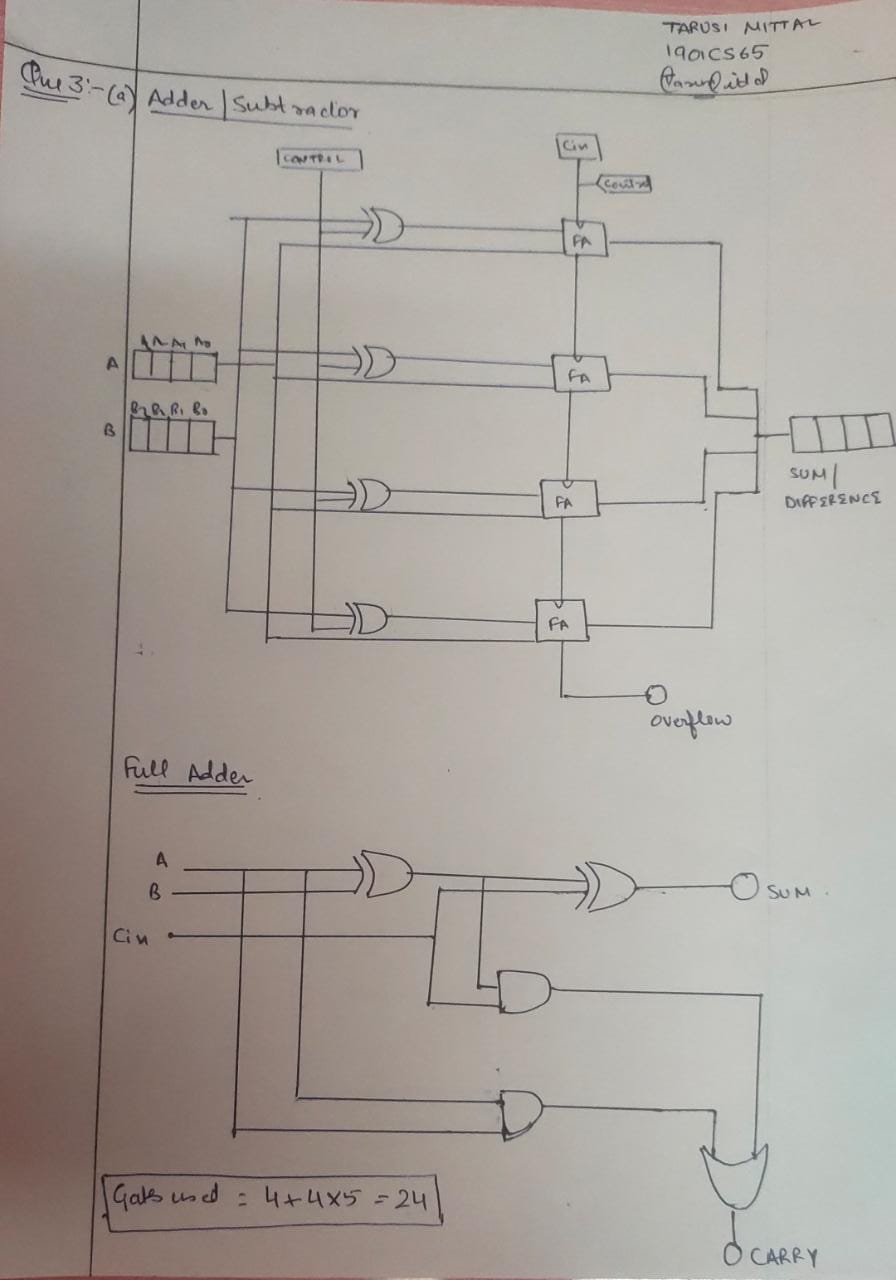 TARUSI MITTAL
1901CS65
Que 3:-(a) Adder/Subtractor
CONTROL
Cin
Control
FA
A3 A2 A1 A0
A
FA
B3 B2 B1 B0
B
SUM/
DIFFERENCE
FA
FA
Overflow
Full Adder
A
B
SUM
Cin
Gates used = 4+4x5 = 24
CARRY